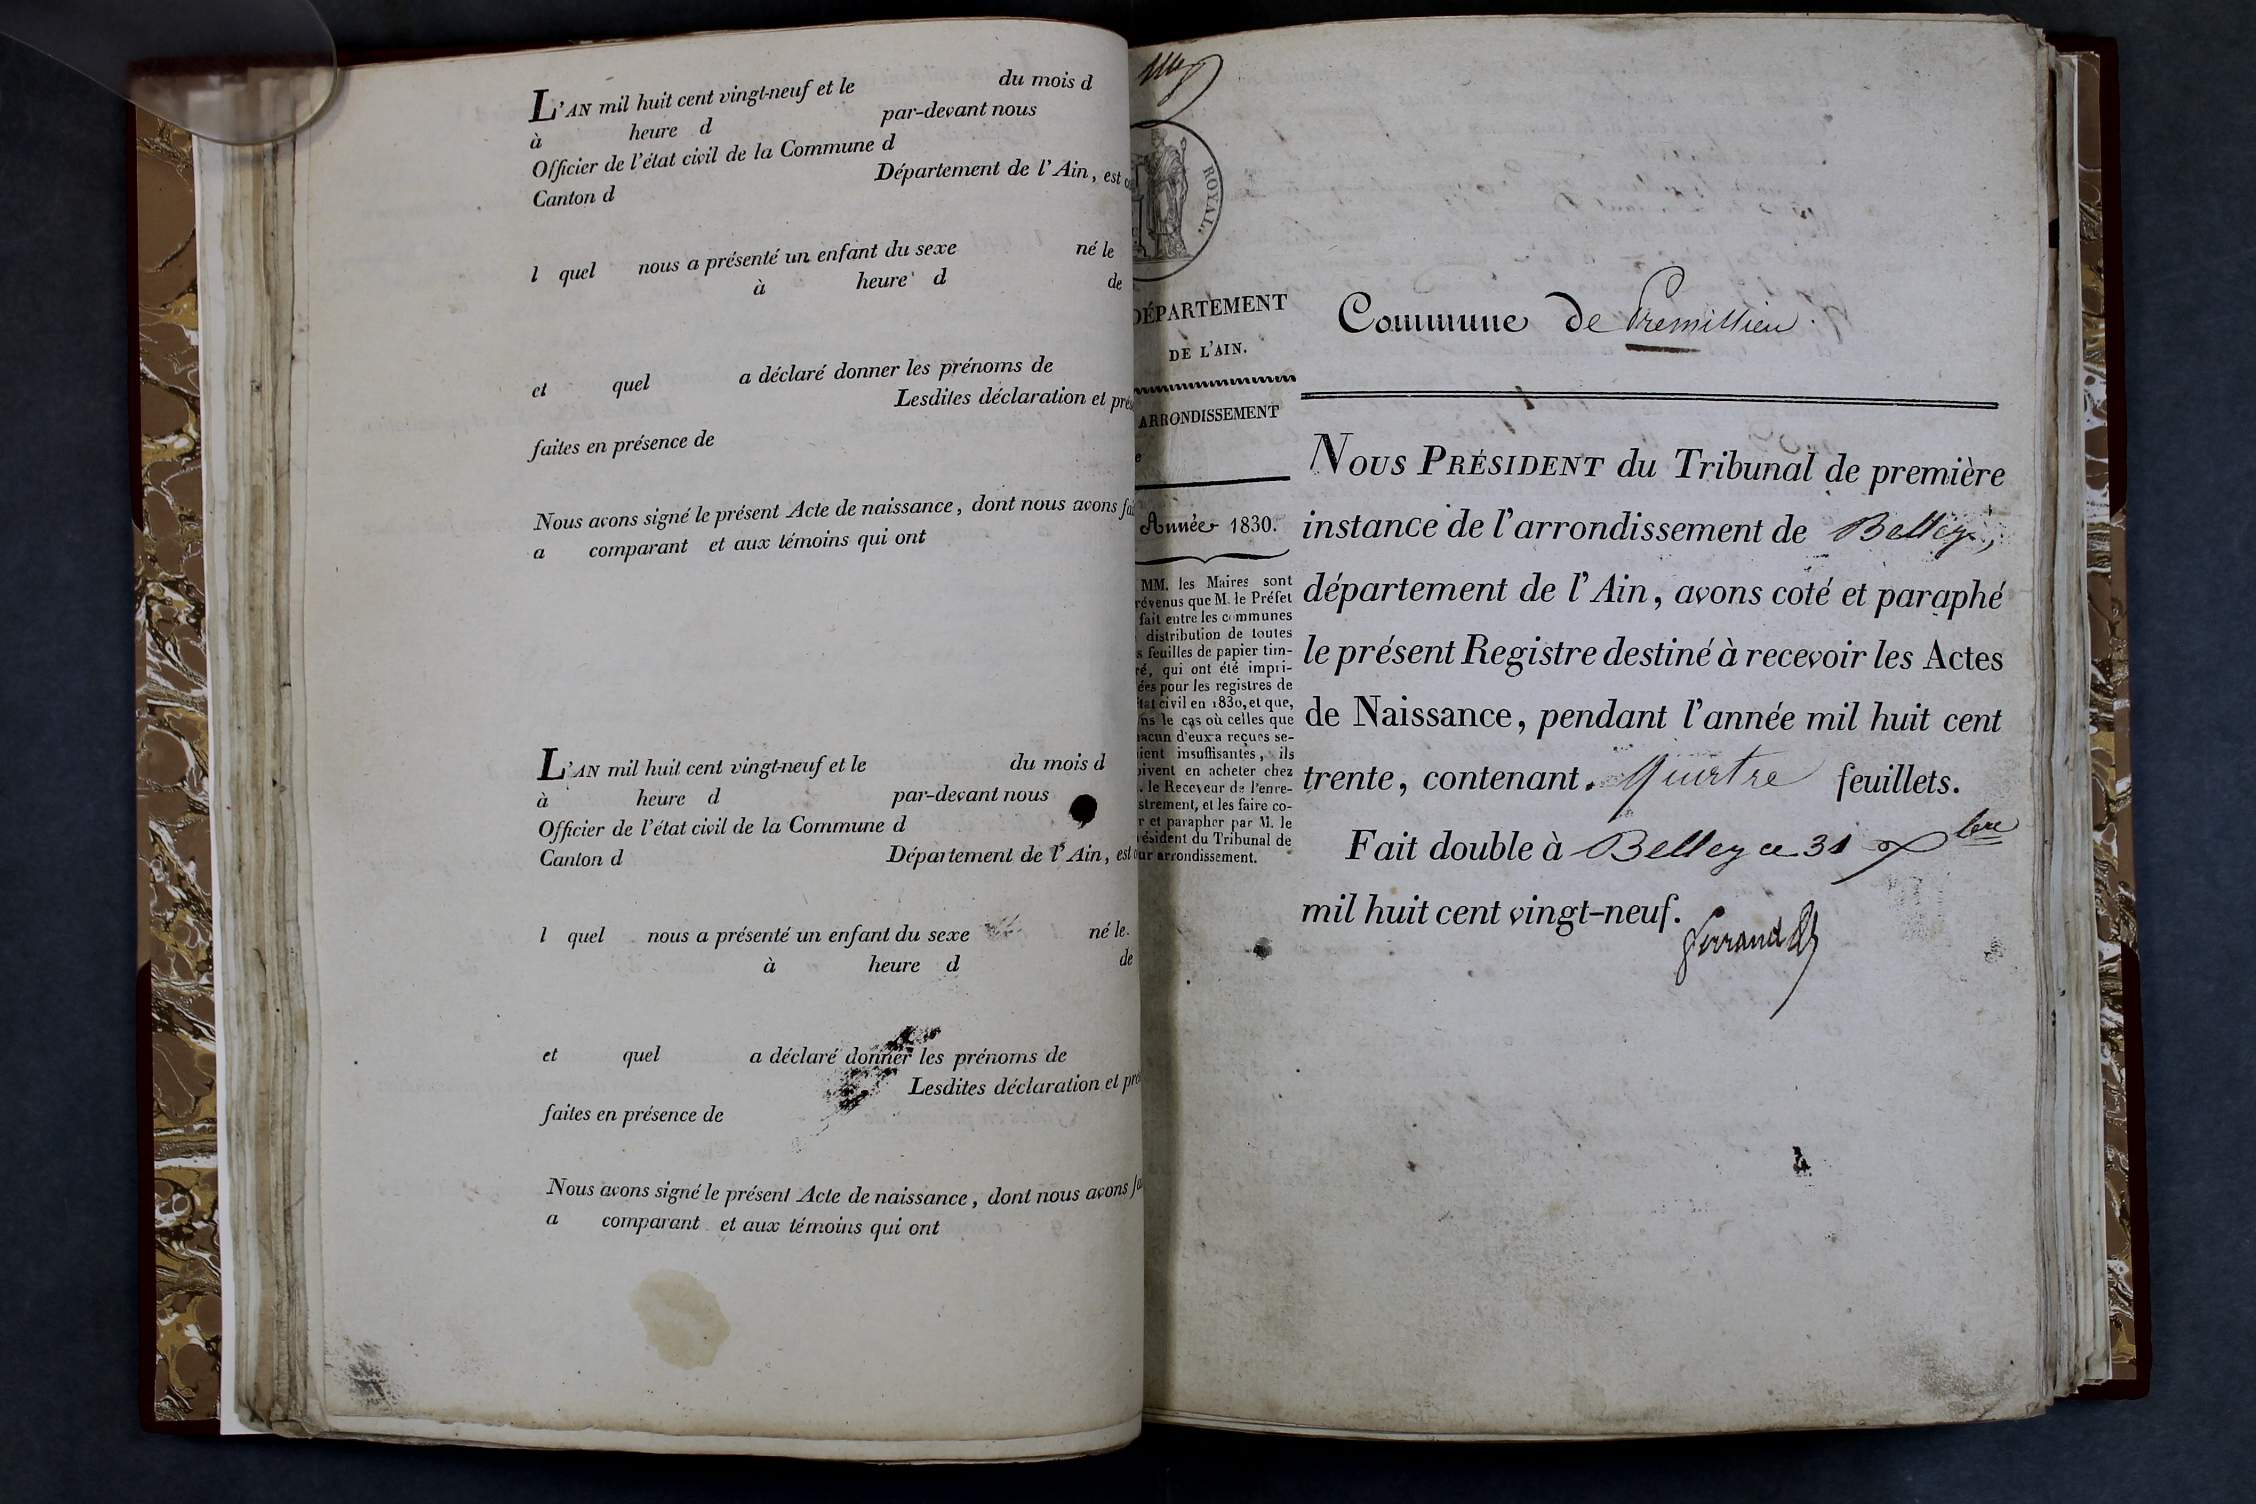 L'AN mil huit cent vingt-neuf et le du mois d
à heure d par-devant nous
Officier de l'état civil de la Commune d
Canton d Département de l'Ain, est
l quel nous a présenté un enfant du sexe né le
à heure d de
et quel a déclaré donner les prénoms de
Lesdites déclaration et prés
faites en présence de
Nous avons signé le présent Acte de naissance, dont nous avons fai
a comparant et aux témoins qui ont
L'AN mil huit cent vingt-neuf et le du mois d
à heure d par-devant nous
Officier de l'état civil de la Commune d
Canton d Département de l'Ain, est
l quel nous a présenté un enfant du sexe né le
à heure d de
et quel a déclaré donner les prénoms de
Lesdites déclaration et pré
faites en présence de
Nous avons signé le présent Acte de naissance, dont nous avons fa
a comparant et aux témoins qui ont
ROYAL.
DÉPARTEMENT
DE L'AIN.
ARRONDISSEMENT
e
Année 1830.
MM. les Maires sont
révenus que M. le Préfet
fait entre les communes
distribution de toutes
s feuilles de papier tim-
ré, qui ont été impri-
ées pour les registres de
état civil en 1830, et que,
ns le cas où celles que
hacun d'eux a reçues se-
aient insuffisantes, ils
oivent en acheter chez
. le Receveur de l'enre-
strement, et les faire co-
r et parapher par M. le
résident du Tribunal de
ur arrondissement.
Commune de Premillieu.
NOUS PRÉSIDENT du Tribunal de première
instance de l'arrondissement de Belley,
département de l'Ain, avons coté et paraphé
le présent Registre destiné à recevoir les Actes
de Naissance, pendant l'année mil huit cent
trente, contenant quatre feuillets.
Fait double à Belley ce 31 Xbre
mil huit cent vingt-neuf.
ferrand